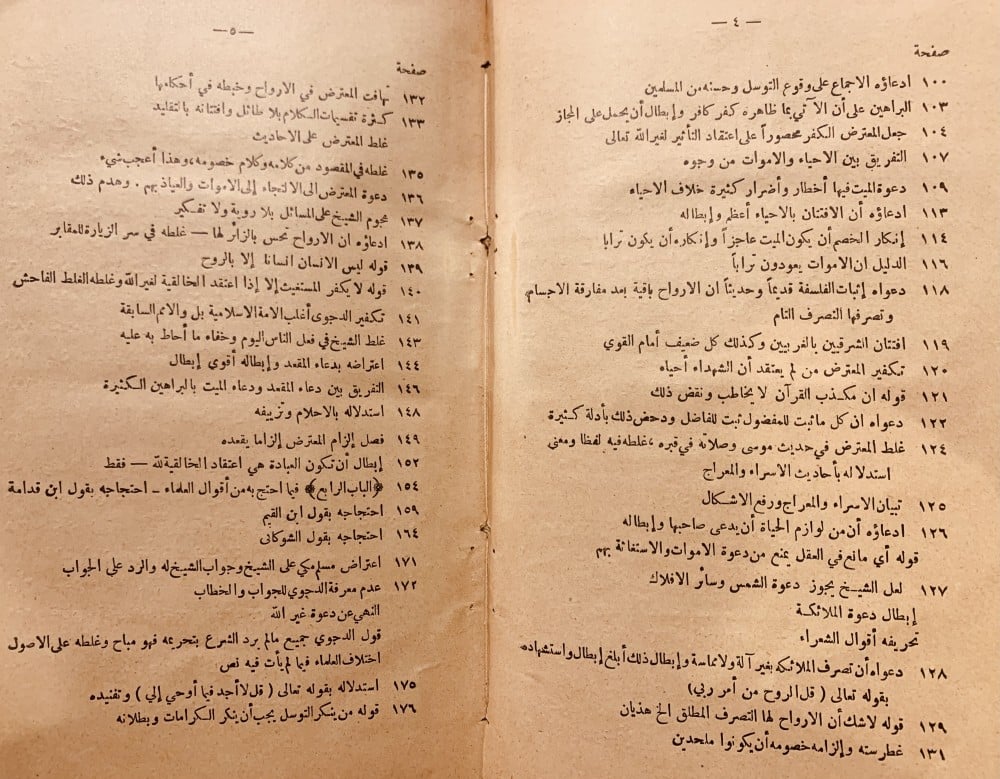 — ٤ —
صفحة
١٠٠ ادعاؤه الاجماع على وقوع التوسل وحسنه من المسلمين
١٠٣ البراهين على أن الآتي بما ظاهره كفر كافر وإبطال أن يحمل على المجاز
١٠٤ جعل المعترض الكفر محصوراً على اعتقاد التأثير لغير الله تعالى
١٠٧ التفريق بين الاحياء والاموات من وجوه
١٠٩ دعوة الميت فيها أخطار وأضرار كثيرة خلاف الاحياء
١١٣ ادعاؤه أن الافتتان بالاحياء أعظم وإبطاله
١١٤ إنكار الخصم أن يكون الميت عاجزاً وإنكاره أن يكون ترابا
١١٦ الدليل ان الاموات يعودون تراباً
١١٨ دعواه إثبات الفلسفة قديماً وحديثاً ان الارواح باقية بعد مفارقة الاجسام،
وتصرفها التصرف التام
١١٩ افتتان الشرقيين بالغربيين وكذلك كل ضعيف أمام القوي
١٢٠ تكفير المعترض من لم يعتقد أن الشهداء أحياء
١٢١ قوله ان مكذب القرآن لا يخاطب ونقض ذلك
١٢٢ دعواه ان كل ما ثبت للمفضول ثبت للفاضل ودحض ذلك بأدلة كثيرة
١٢٤ غلط المعترض في حديث موسى وصلاته في قبره، غلطه فيه لفظا ومعنى
استدلاله بأحاديث الاسراء والمعراج
١٢٥ تبيان الاسراء والمعراج ورفع الاشكال
١٢٦ ادعاؤه أن من لوازم الحياة أن يدعى صاحبها وإبطاله
قوله أي مانع في العقل يمنع من دعوة الاموات والاستغاثة بهم
١٢٧ لعل الشيخ يجوز دعوة الشمس وسائر الافلاك
إبطال دعوة الملائكة
تحريفه أقوال الشعراء
١٢٨ دعواه أن تصرف الملائكة بغير آلة ولا مماسة وإبطال ذلك أبلغ إبطال واستشهاده
بقوله تعالى ( قل الروح من أمر ربي)
١٢٩ قوله لا شك أن الارواح لها التصرف المطلق الخ هذيان
١٣١ غطرسته وإلزامه خصومه أن يكونوا ملحدين
— ٥ —
صفحة
١٣٢ تهافت المعترض في الارواح وخبطه في أحكامها
١٣٣ كثرة تقسيمات الكلام بلا طائل وافتتانه بالتقليد
غلط المعترض على الاحاديث
١٣٥ غلطه في المقصود من كلامه وكلام خصومه، وهذا أعجب شيء
١٣٦ دعوة المعترض الى الالتجاء إلى الاموات والعياذ بهم. وهدم ذلك
١٣٧ هجوم الشيخ على المسائل بلا روية ولا تفكير
١٣٨ ادعاؤه ان الارواح تحس بالزائر لها — غلطه في سر الزيارة للمقابر
١٣٩ قوله ليس الانسان انسانا إلا بالروح
١٤٠ قوله لا يكفر المستغيث إلا إذا اعتقد الخالقية لغير الله وغلطه الغلط الفاحش
١٤١ تكفير الدجوى أغلب الامة الاسلامية بل والامم السابقة
١٤٣ غلط الشيخ في فعل الناس اليوم وخفاء ما أحاط به عليه
١٤٤ اعتراضه بدعاء المقعد وإبطاله أقوي إبطال
١٤٦ التفريق بين دعاء المقعد ودعاء الميت بالبراهين الكثيرة
١٤٨ استدلاله بالاحلام وتزييفه
١٤٩ فصل إلزام المعترض إلزاما يقعده
١٥٢ إبطال أن تكون العبادة هي اعتقاد الخالقية لله — فقط
١٥٤ ﴿الباب الرابع﴾ فيما احتج به من أقوال العلماء — احتجاجه بقول ابن قدامة
١٥٩ احتجاجه بقول ابن القيم
١٦٤ احتجاجه بقول الشوكانى
١٧١ اعتراض مسلم مكي على الشيخ وجواب الشيخ له والرد على الجواب
١٧٢ عدم معرفة الدجوي للجواب والخطاب
النهي عن دعوة غير الله
قول الدجوي جميع مالم يرد الشرع بتحريمه فهو مباح وغلطه على الاصول
اختلاف العلماء فيما لم يأت فيه نص
١٧٥ استدلاله بقوله تعالى ( قل لا أجد فيما أوحي إلي ) وتفنيده
١٧٦ قوله من ينكر التوسل يجب أن ينكر الكرامات وبطلانه